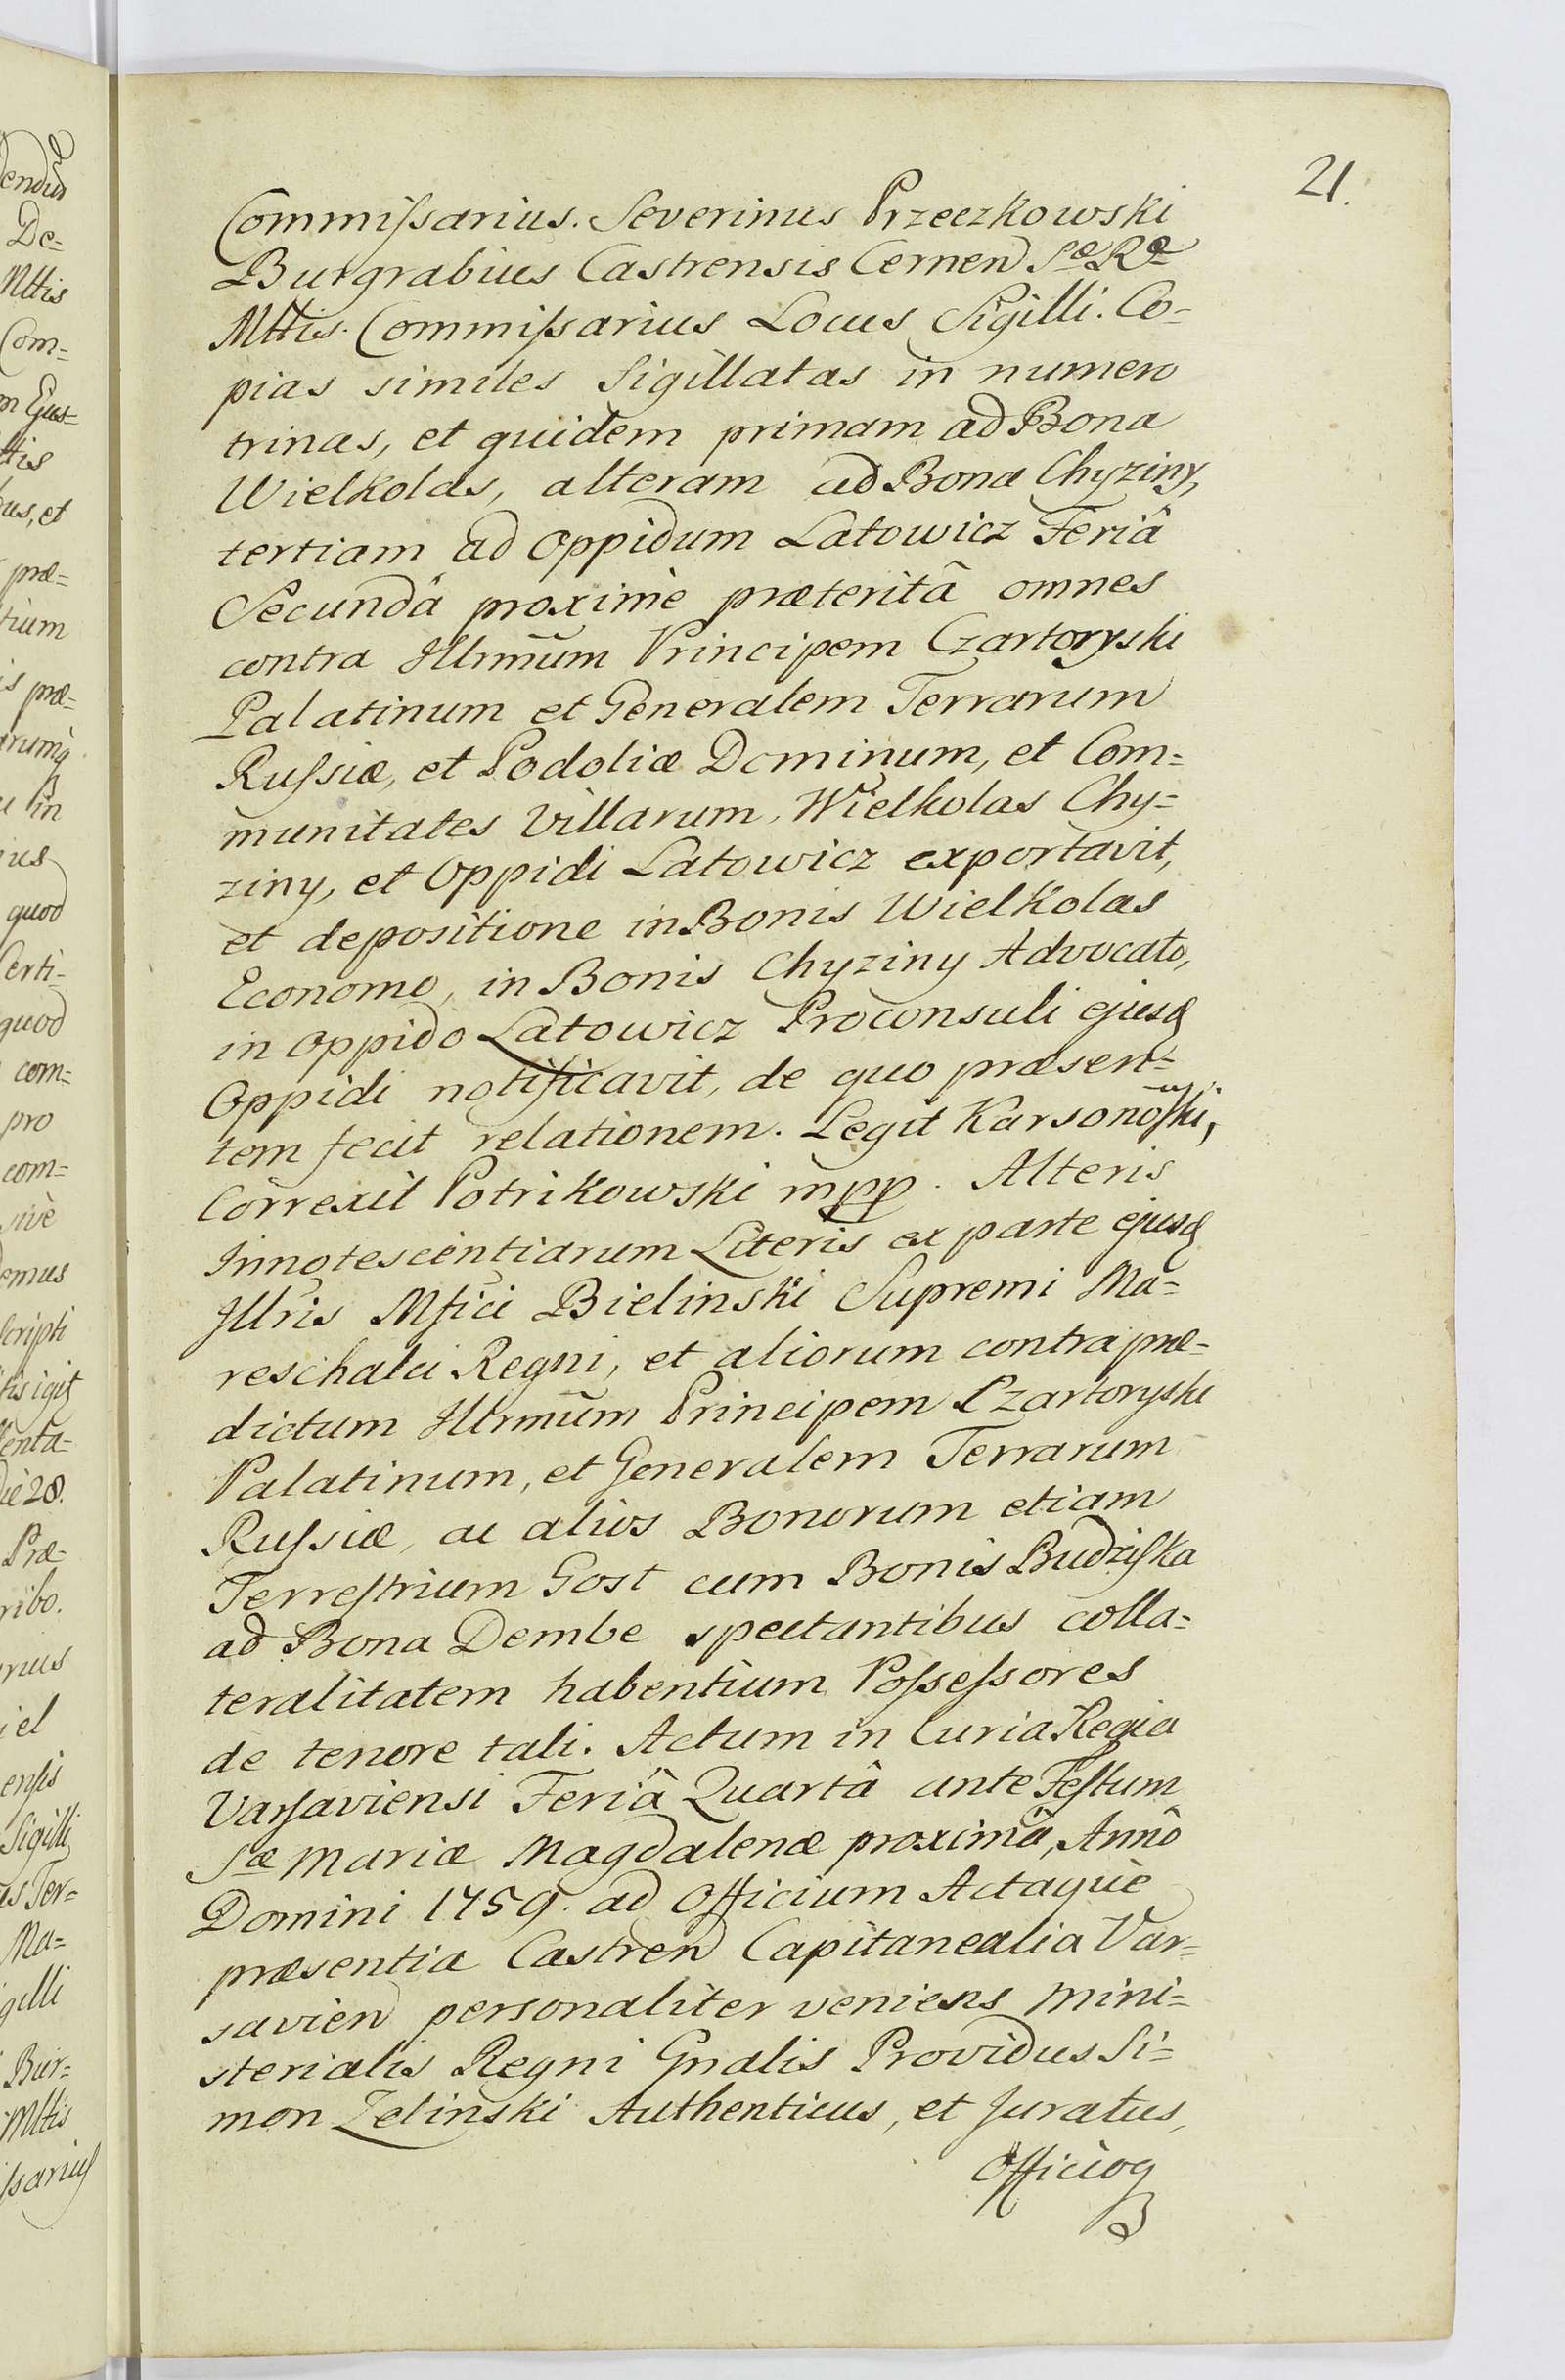 21.
Commiſsarius. Severinus Przeczkowski
Burgrabius Castrensis Cernen Sæ Ræ
Mttis. Commiſsarius Locus Sigilli. Co-
pias similes Sigillatas in numero
trinas, et quidem primam ad Bona
Wielkolas, alteram ad Bona Chyziny,
tertiam ad Oppidum Latowicz Feriâ
Secundâ proximè præteritâ omnes
contra Illrmũm Principem Czartoryski
Palatinum et Generalem Terrarum
Ruſsiæ, et Podoliæ Dominum, et Com=
munitates Villarum, Wielkolas Chy=
ziny, et Oppidi Latowicz exportavit,
et depositione in Bonis Wielkolas
Economo, in Bonis Chyziny Advocato,
in Oppido Latowicz Proconsuli ejusq
Oppidi notificavit, de quo præsen=
tem fecit relationem. Legit Karsonoſki,
Correxit Potrikowski mpp. Alteris
Innotescentiarum Literis ex parte ejusq
Illris Mfici Bielinski Supremi Ma=
reschalci Regni, et aliorum contra præ-
dictum Illrmũm Principem Czartoryski
Palatinum, et Generalem Terrarum
Ruſsiæ, ac alios Bonorum etiam
Terreſtrium Gost cum Bonis Budziſka
ad Bona Dembe spectantibus colla=
teralitatem habentium Poſseſsores
de tenore tali. Actum in Curia Regia
Varſaviensi Feriâ Quartâ ante Feſtum
Sæ Mariæ Magdalenæ proximâ, Annô
Domini 1759. ad Officium Actaquè
præsentia Castren Capitanealia Var=
savien personaliter veniens Mini=
sterialis Regni Gnalis Providus Si=
mon Zelinski Authenticus, et Juratus,
Officioq